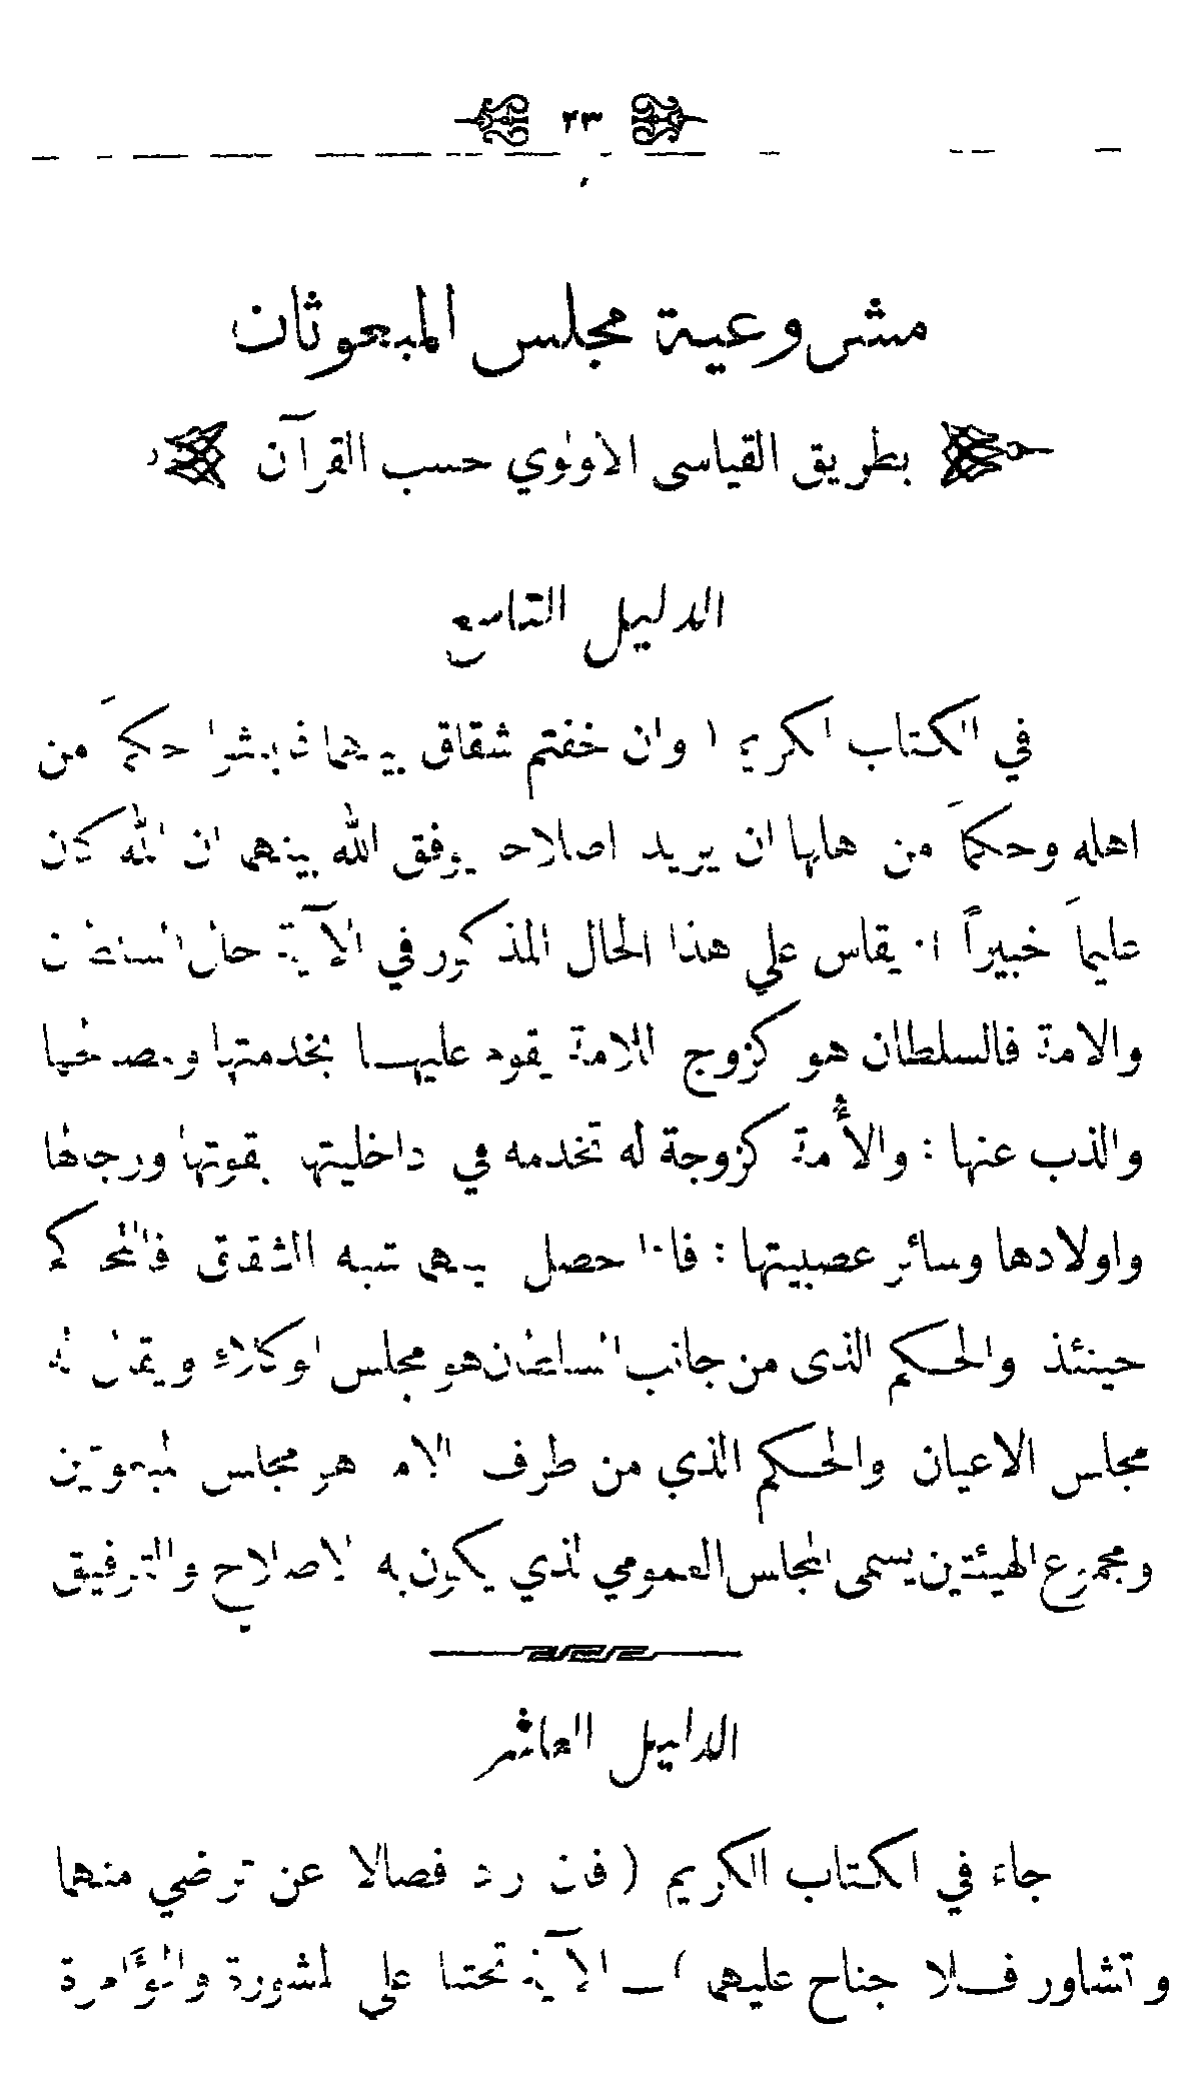 ٢٣
مشروعية مجلس المبعوثان
بطريق القياسى الاولوي حسب القرآن
الدليل التاسع
في الكتاب الكريم ( وان خفتم شقاق بينهما فابعثوا حكماً من
اهله وحكماً من اهلها ان يريد اصلاحا يوفق الله بينهما ان الله كان
عليماً خبيراً ) يقاس على هذا الحال المذكور في الآية حال السلطان
والامة فالسلطان هو كزوج للامة يقوم عليهـا بخدمتها ومصالحها
والذب عنها : والأمة كزوجة له تخدمه في داخليتها بقوتها ورجالها
واولادها وسائر عصبيتها : فاذا حصل بينهما شبه الشقاق فالتحاكم
حينئذ والحـكم الذى من جانب السلطان هو مجلس الوكلاء ويقال له
مجلس الاعيان والحـكم الذي من طرف الامة هو مجلس المبعوثين
ومجموع الهيئتين يسمى المجلس العمومي الذي يكون به الاصلاح والتوفيق
الدليل العاشر
جاء في الكتاب الكريم ( فان اراد فصالا عن تراضي منهما
وتشاور فـلا جناح عليهما ) ـ الآية تحثنا على المشورة والمؤامرة